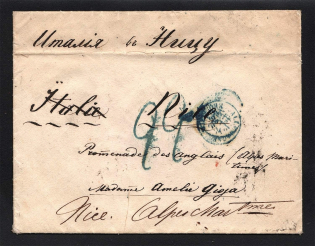 Италія въ Ниццу
Italie Nice
Promenade des Anglais (Alpes Mari-
times)
Madame Amelie Giga
Nice. Alpes Martmes